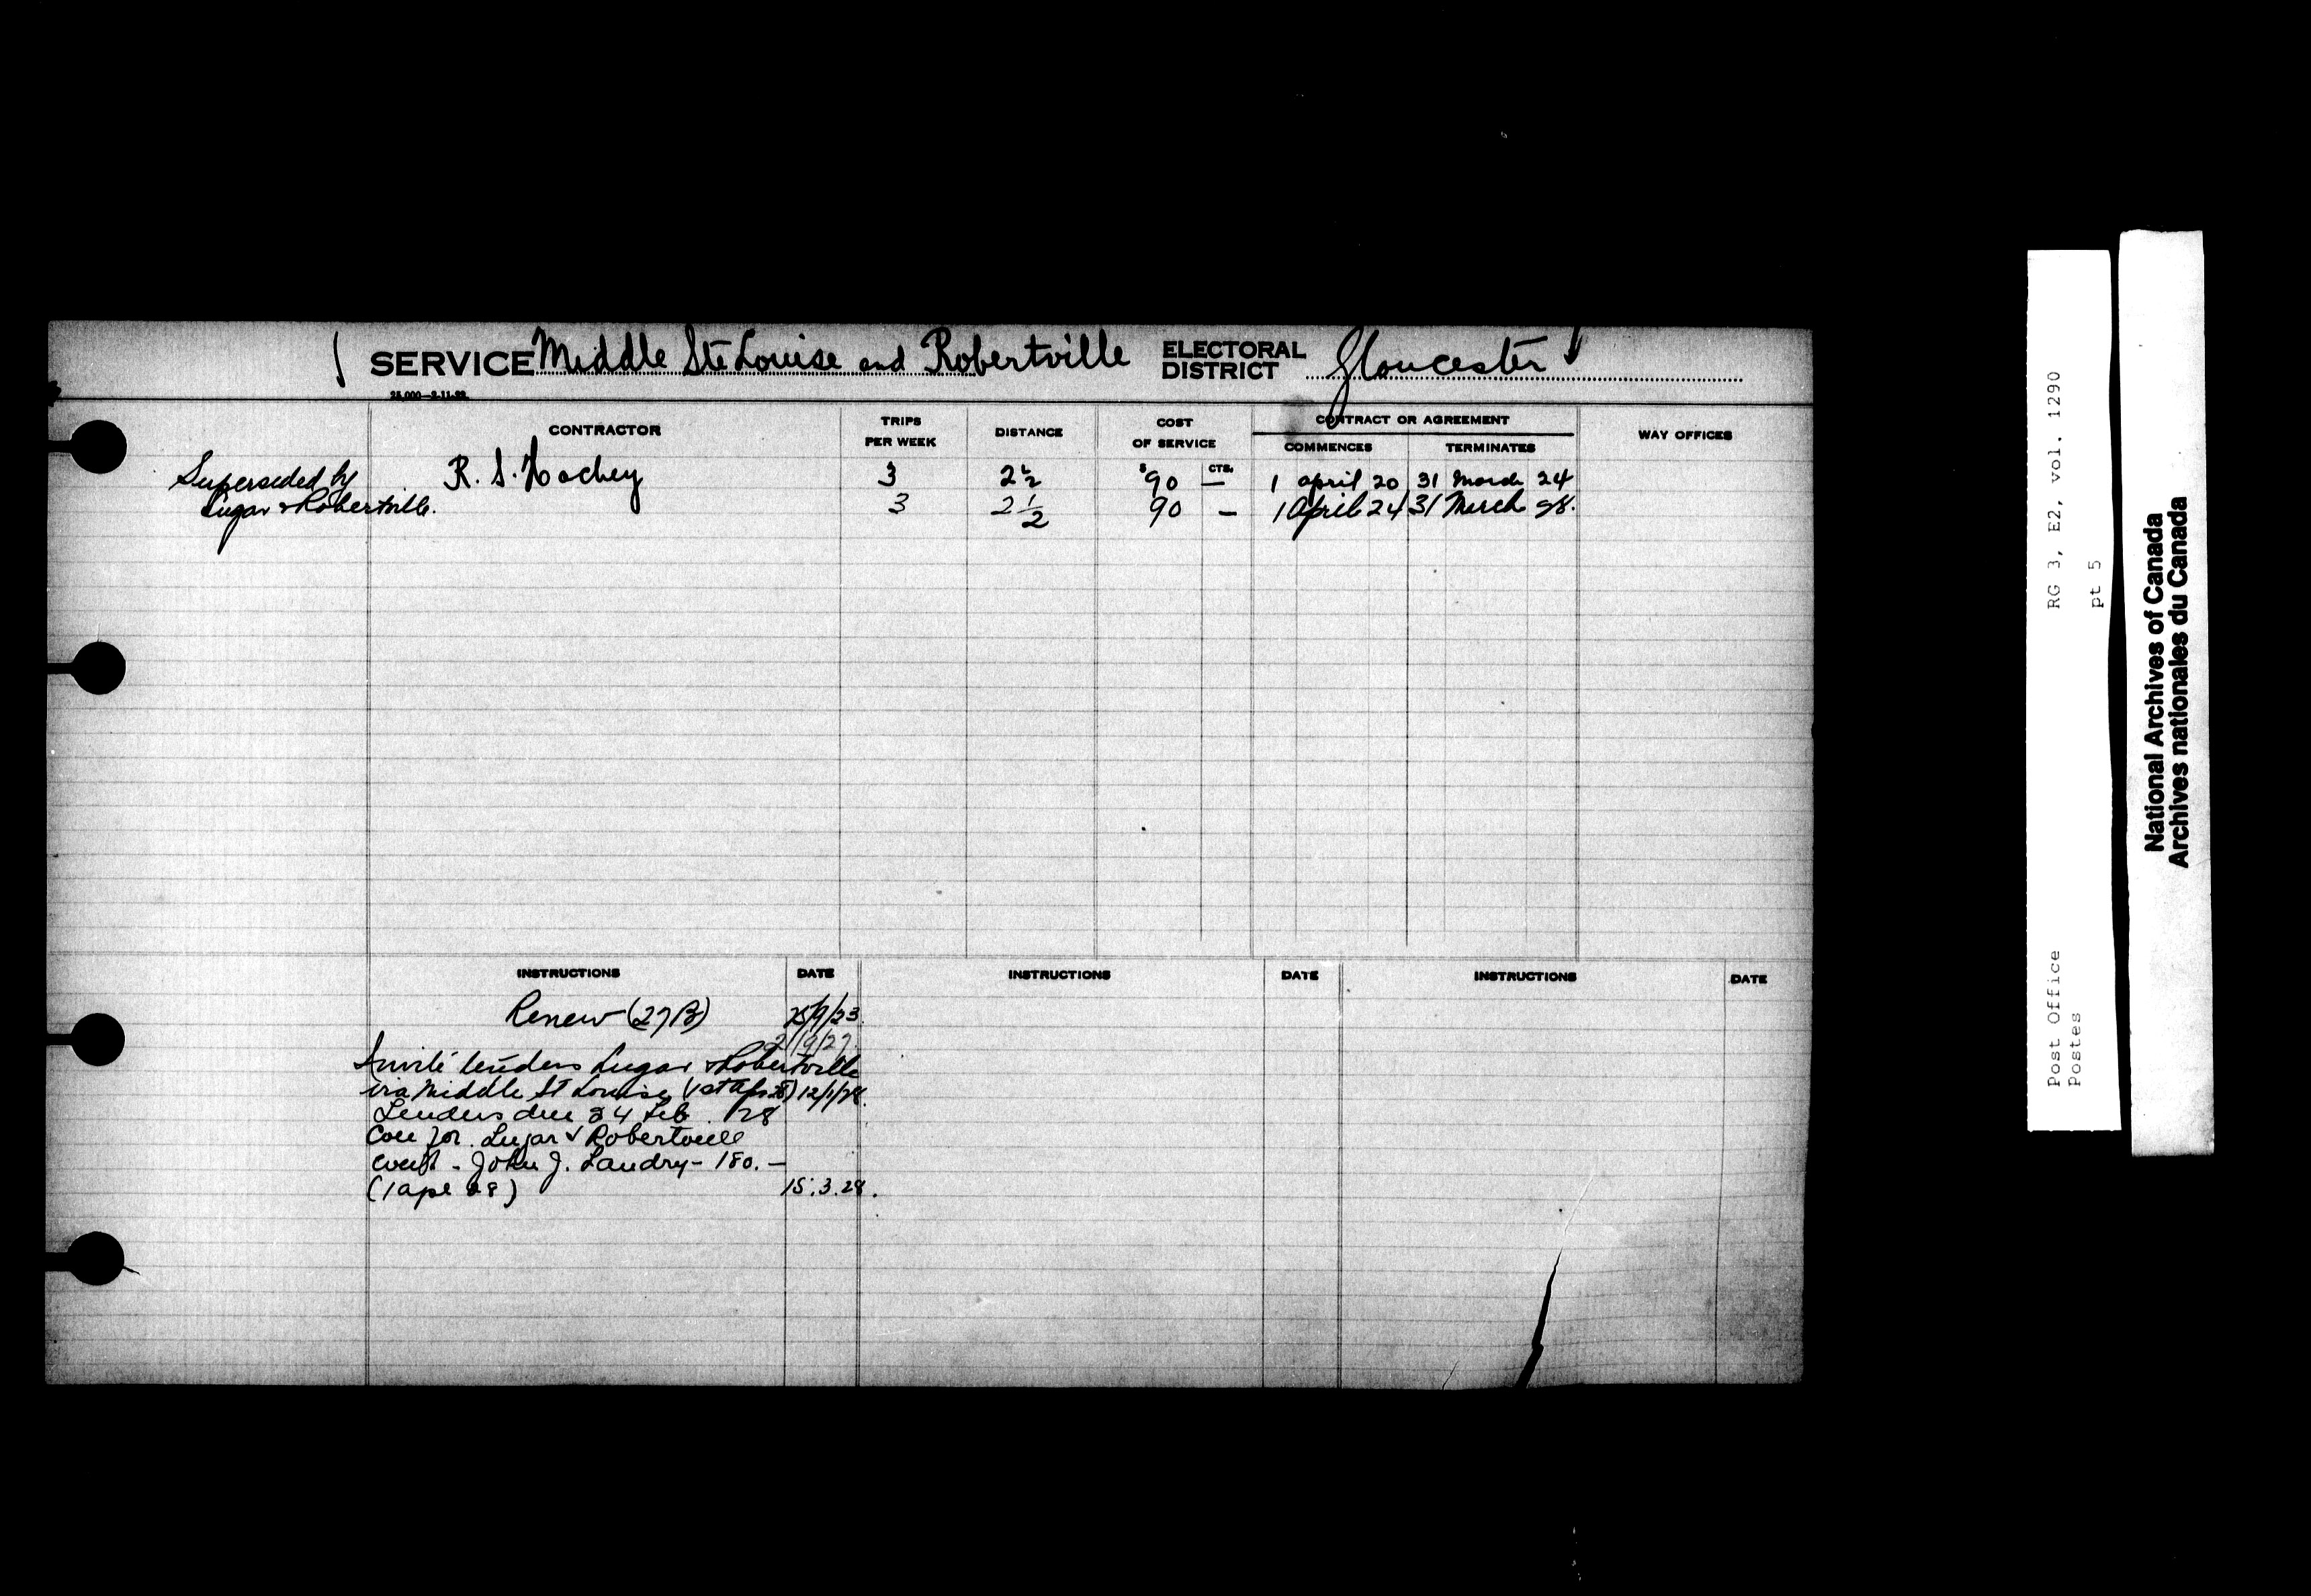 SERVICE Middle Ste Louise and Robertville ELECTORAL DISTRICT Gloucester
25,000—2-11-22.
CONTRACTOR TRIPS PER WEEK DISTANCE COST OF SERVICE CONTRACT OR AGREEMENT WAY OFFICES
COMMENCES TERMINATES
$ CTS.
Superseded by R. S. Hachey 3 2½ 90 — 1 April 20 31 March 24
Lugar & Robertville. 3 2½ 90 — 1 April 24 31 March 28.
INSTRUCTIONS DATE INSTRUCTIONS DATE INSTRUCTIONS DATE
Renew (27B) 25/9/23.
2/9/27.
Invite tenders Lugar & Robertville
via Middle St Louise (1st Apr 28) 12/1/28.
Tenders due 24 Feb 28
Con for Lugar & Robertville
John J. Landry - 180. —
(1 Apl 28) 15.3.28.
RG 3, E2, vol. 1290
pt 5
Post Office
Postes
National Archives of Canada
Archives nationales du Canada